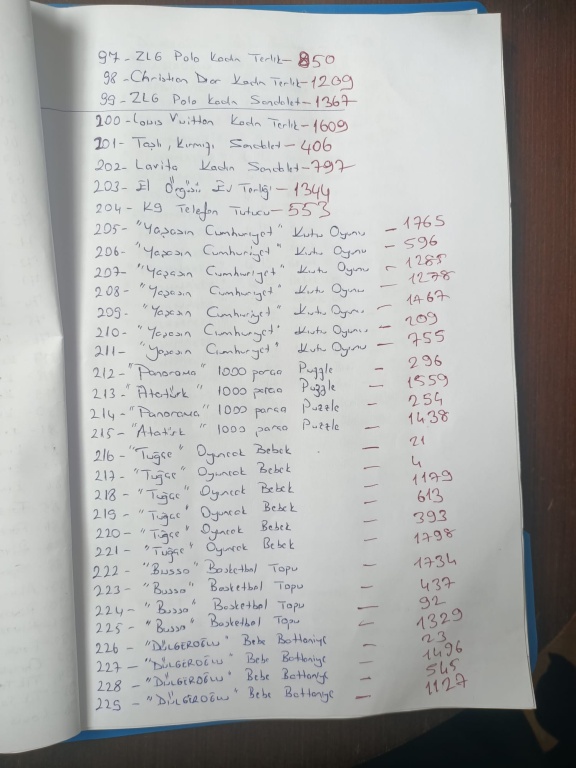 97 - ZLG Polo Kadın Terlik - 850
98 - Christian Dior Kadın Terlik - 1209
99 - ZLG Polo Kadın Sandalet - 1367
200 - Louis Vuitton Kadın Terlik - 1609
201 - Taşlı, Kırmızı Sandalet - 406
202 - Lavita Kadın Sandalet - 797
203 - El Örgüsü Ev Terliği - 1344
204 - K9 Telefon Tutucu - 553
205 - "Yaşasın Cumhuriyet" Kutu Oyunu - 1765
206 - "Yaşasın Cumhuriyet" Kutu Oyunu - 596
207 - "Yaşasın Cumhuriyet" Kutu Oyunu - 1285
208 - "Yaşasın Cumhuriyet" Kutu Oyunu - 1278
209 - "Yaşasın Cumhuriyet" Kutu Oyunu - 1467
210 - "Yaşasın Cumhuriyet" Kutu Oyunu - 209
211 - "Yaşasın Cumhuriyet" Kutu Oyunu - 755
212 - "Panorama" 1000 parça Puzzle - 296
213 - "Atatürk" 1000 parça Puzzle - 1559
214 - "Panorama" 1000 parça Puzzle - 254
215 - "Atatürk" 1000 parça Puzzle - 1438
216 - "Tuğçe" Oyuncak Bebek - 21
217 - "Tuğçe" Oyuncak Bebek - 4
218 - "Tuğçe" Oyuncak Bebek - 1179
219 - "Tuğçe" Oyuncak Bebek - 613
220 - "Tuğçe" Oyuncak Bebek - 393
221 - "Tuğçe" Oyuncak Bebek - 1798
222 - "Busso" Basketbol Topu - 1734
223 - "Busso" Basketbol Topu - 437
224 - "Busso" Basketbol Topu - 92
225 - "Busso" Basketbol Topu - 1329
226 - "DÜLGEROĞLU" Bebe Battaniye - 23
227 - "DÜLGEROĞLU" Bebe Battaniye - 1496
228 - "DÜLGEROĞLU" Bebe Battaniye - 545
229 - "DÜLGEROĞLU" Bebe Battaniye - 1127